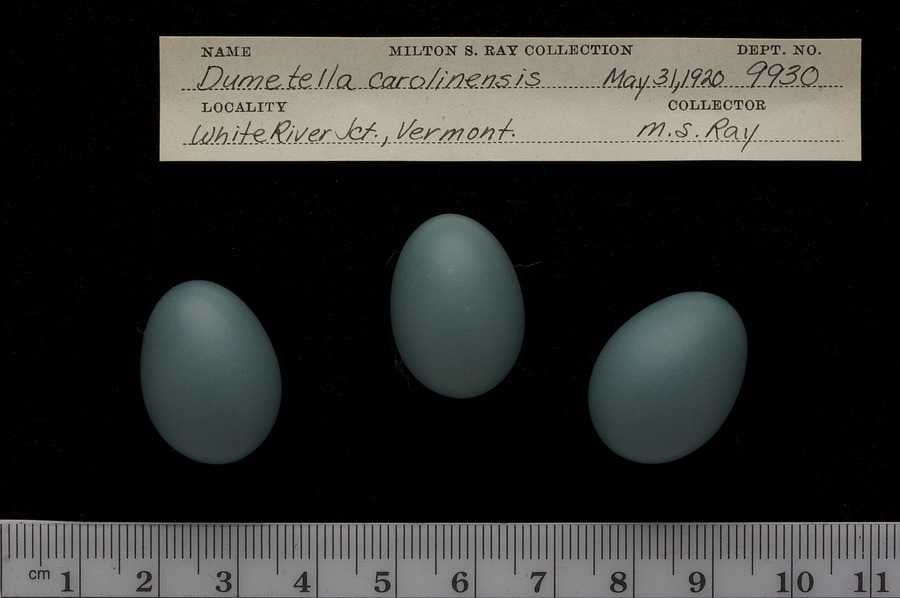 NAME MILTON S. RAY COLLECTION DEPT. NO.
Dumetella carolinensis May 31, 1920 9930
LOCALITY COLLECTOR
White River Jct., Vermont. M.S. Ray
cm 1 2 3 4 5 6 7 8 9 10 11